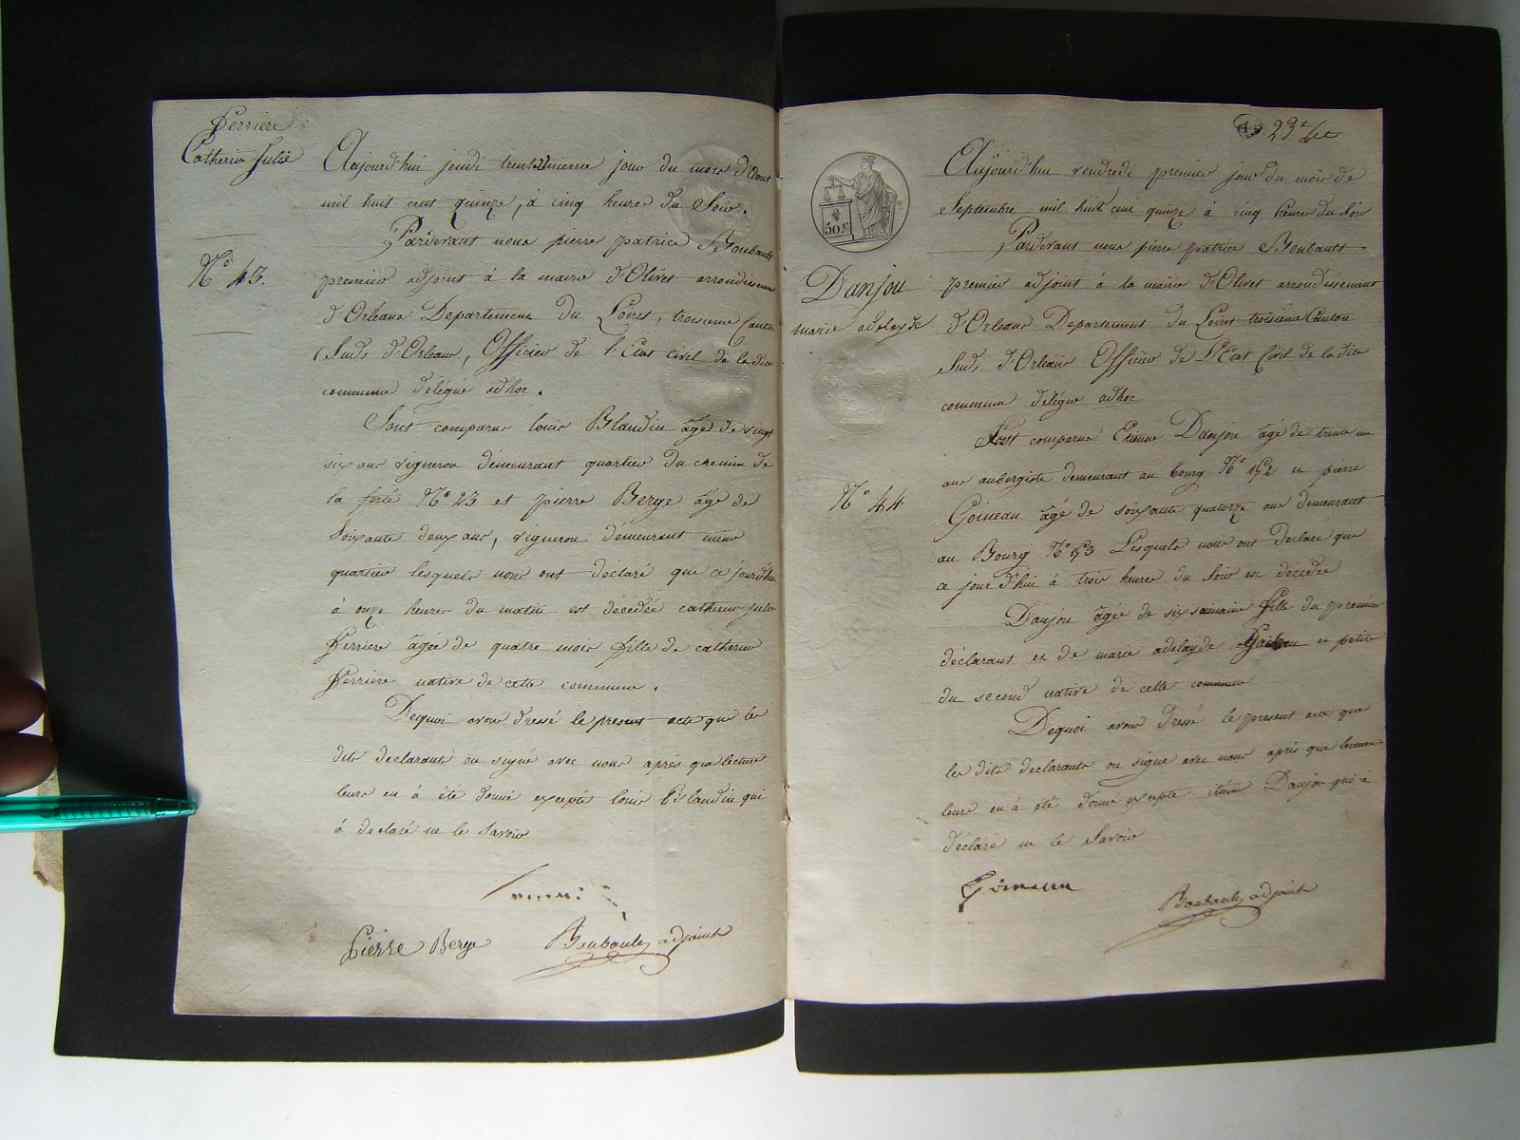 Perriere
Catherin Julie
N° 43.
Aujourd'hui jeudi trente unieme jour du mois d'Aout
mil huit cent quinze, à cinq heures du Soir.
Pardevant nous pierre patrice Boubault
premier adjoint à la mairie d'Olivet arrondissement
d'Orleans Departement du Loiret, troisieme Canton
Sud d'Orleans, Officier de l'Etat civil de la dite
commune délégué adhoc.
Sont comparus louis Blandin âgé de vingt
six ans vigneron démeurant quartier du chemin de
la ferté N° 23 et pierre Berge âgé de
Soixante deux ans, vigneron démeurant même
quartier lesquels nous ont déclaré que ce jourd'hui
à onze heures du matin est decedée catherin julie
Perriere âgée de quatre mois fille de catherin
Perriere native de cette commune.
Dequoi avons dressé le present acte que les
dits declarants on signé avec nous après que lecture
leurs en à été donné excepté louis Blandin qui
à declaré ne le Savoir
Pierre Berge Boubault adjoint
23e
50 c
Danjou
marie adelayde
N° 44
Aujourd'hui vendredi premier jour du mois de
Septembre mil huit cent quinze à cinq heures du Soir
Pardevant nous pierre patrice Boubault
premier adjoint à la mairie d'Olivet arrondissement
d'Orleans Departement du Loiret troisieme Canton
Sud d'Orleans Officier de l'Etat Civil de la dite
commune délégué adhoc
Sont comparus Etienne Danjou âgé de trente un
ans aubergiste demeurant au bourg N° 152 et pierre
Goineau âgé de soixante quatorze ans demeurant
au Bourg N° 153 Lesquels nous ont declaré que
ce jour d'hui à trois heures du Soir est decedée
Danjou âgée de six semaine fille du premier
déclarant et de marie adelayde et petite
du second native de cette commune
Dequoi avons dressé le present acte que
les dits declarants on signé avec nous après que lecture
leurs en à été donné excepté Danjou qui à
déclaré ne le Savoir
Goineau
Boubault adjoint